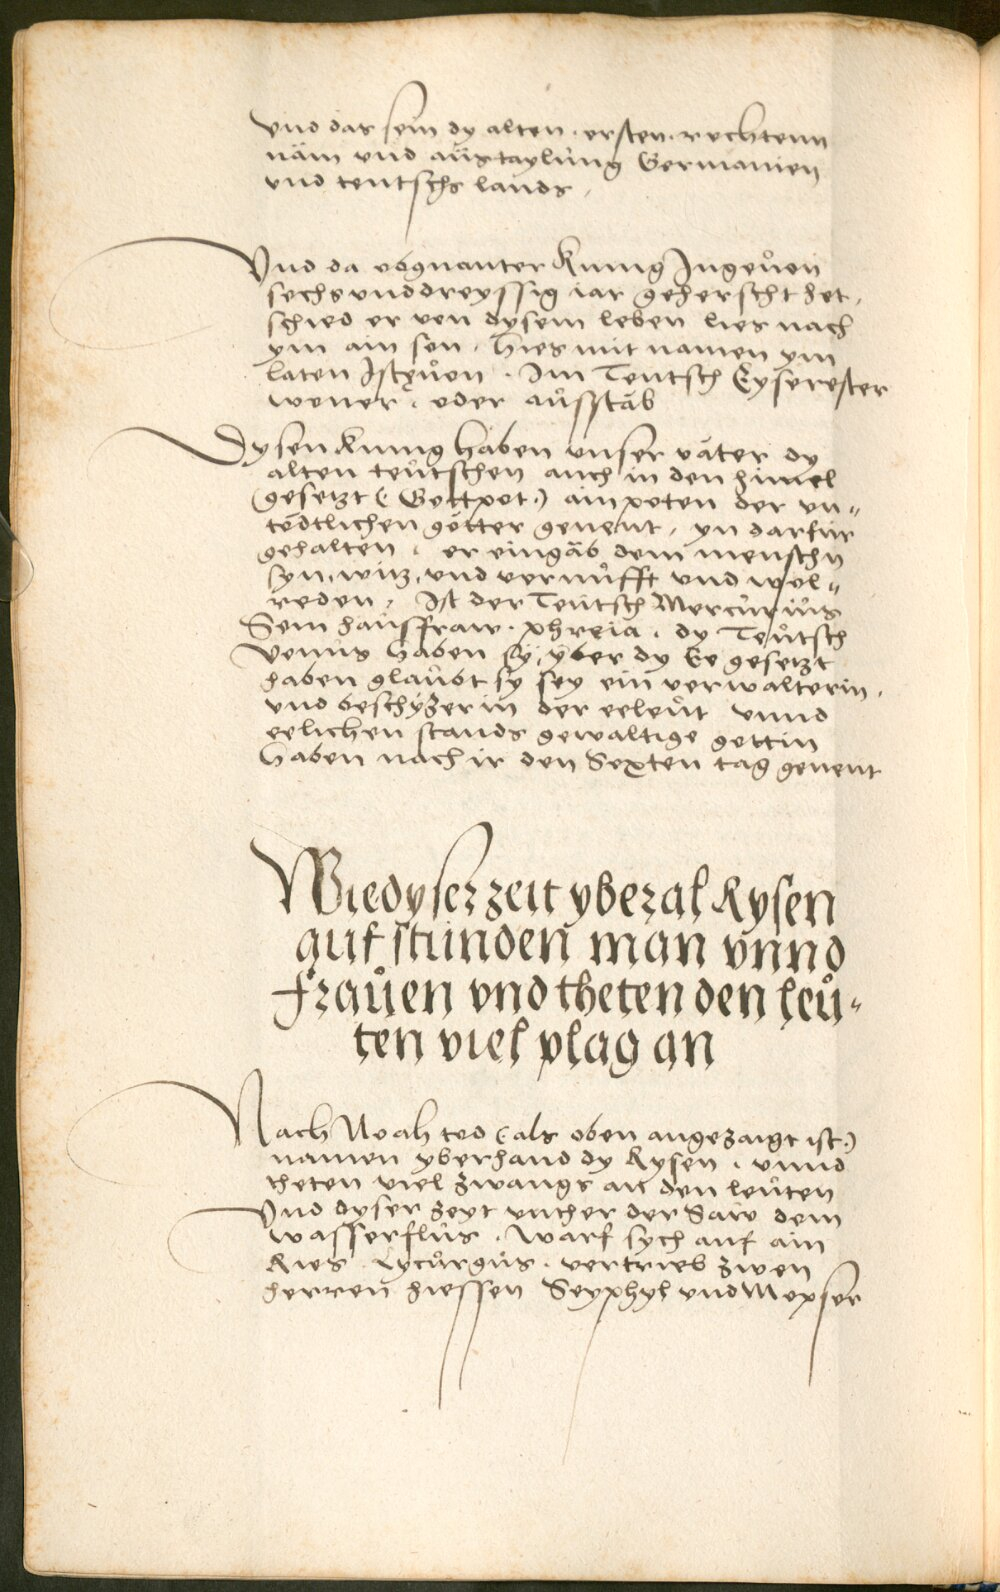 vnd das sein dy alten . ersten . rechtenn
näm vnd außtaylung Germanien
vnd teutschs lands .
Vnd da obgnanter Kunig Ingeůon
sechsunddreyssig iar geherscht het .
schied er von dysem leben lies nach
ym ain son . hies mit namen ym
laten Istęůon . Im Teutsch Eyserester
woner . oder aůsstäb
Dysen Kunig haben vnser väter dy
alten teůtschen auch in den himel
gesetzt (Gottpot) ain poten der vn=
tödtlichen götter genent . yn darfür
gehalten . er eingäb dem menschn
syn, witz, vnd vernůfft vnd wol=
reden . Ist der Teutsch Mercůriůs
Sein haůsfraw . phreia . dy Teůtsch
Venůs haben sy, yber dy Ee gesetzt
haben glaůbt sy sey ein verwalterin .
vnd beschyzerin der eeleůt vnnd
eelichen stands gewaltige gottin
haben nach ir den Sexten tag genent
Wie dyser zeit yberal Rysen
auf stunden man vnnd
fraůen vnd theten den leů-
ten viel plag an
Nach Noah tod (als oben angezaigt ist)
namen yberhand dy Rysen . vnnd
theten viel zwangs an den leůten
Vnd dyser zeyt vnther der Saw dem
wasserflůs . warf sych auf ain
Ries . Lycůrgůs . vertrieb zwen
herren hiessen Seyphyl vnd Mopser